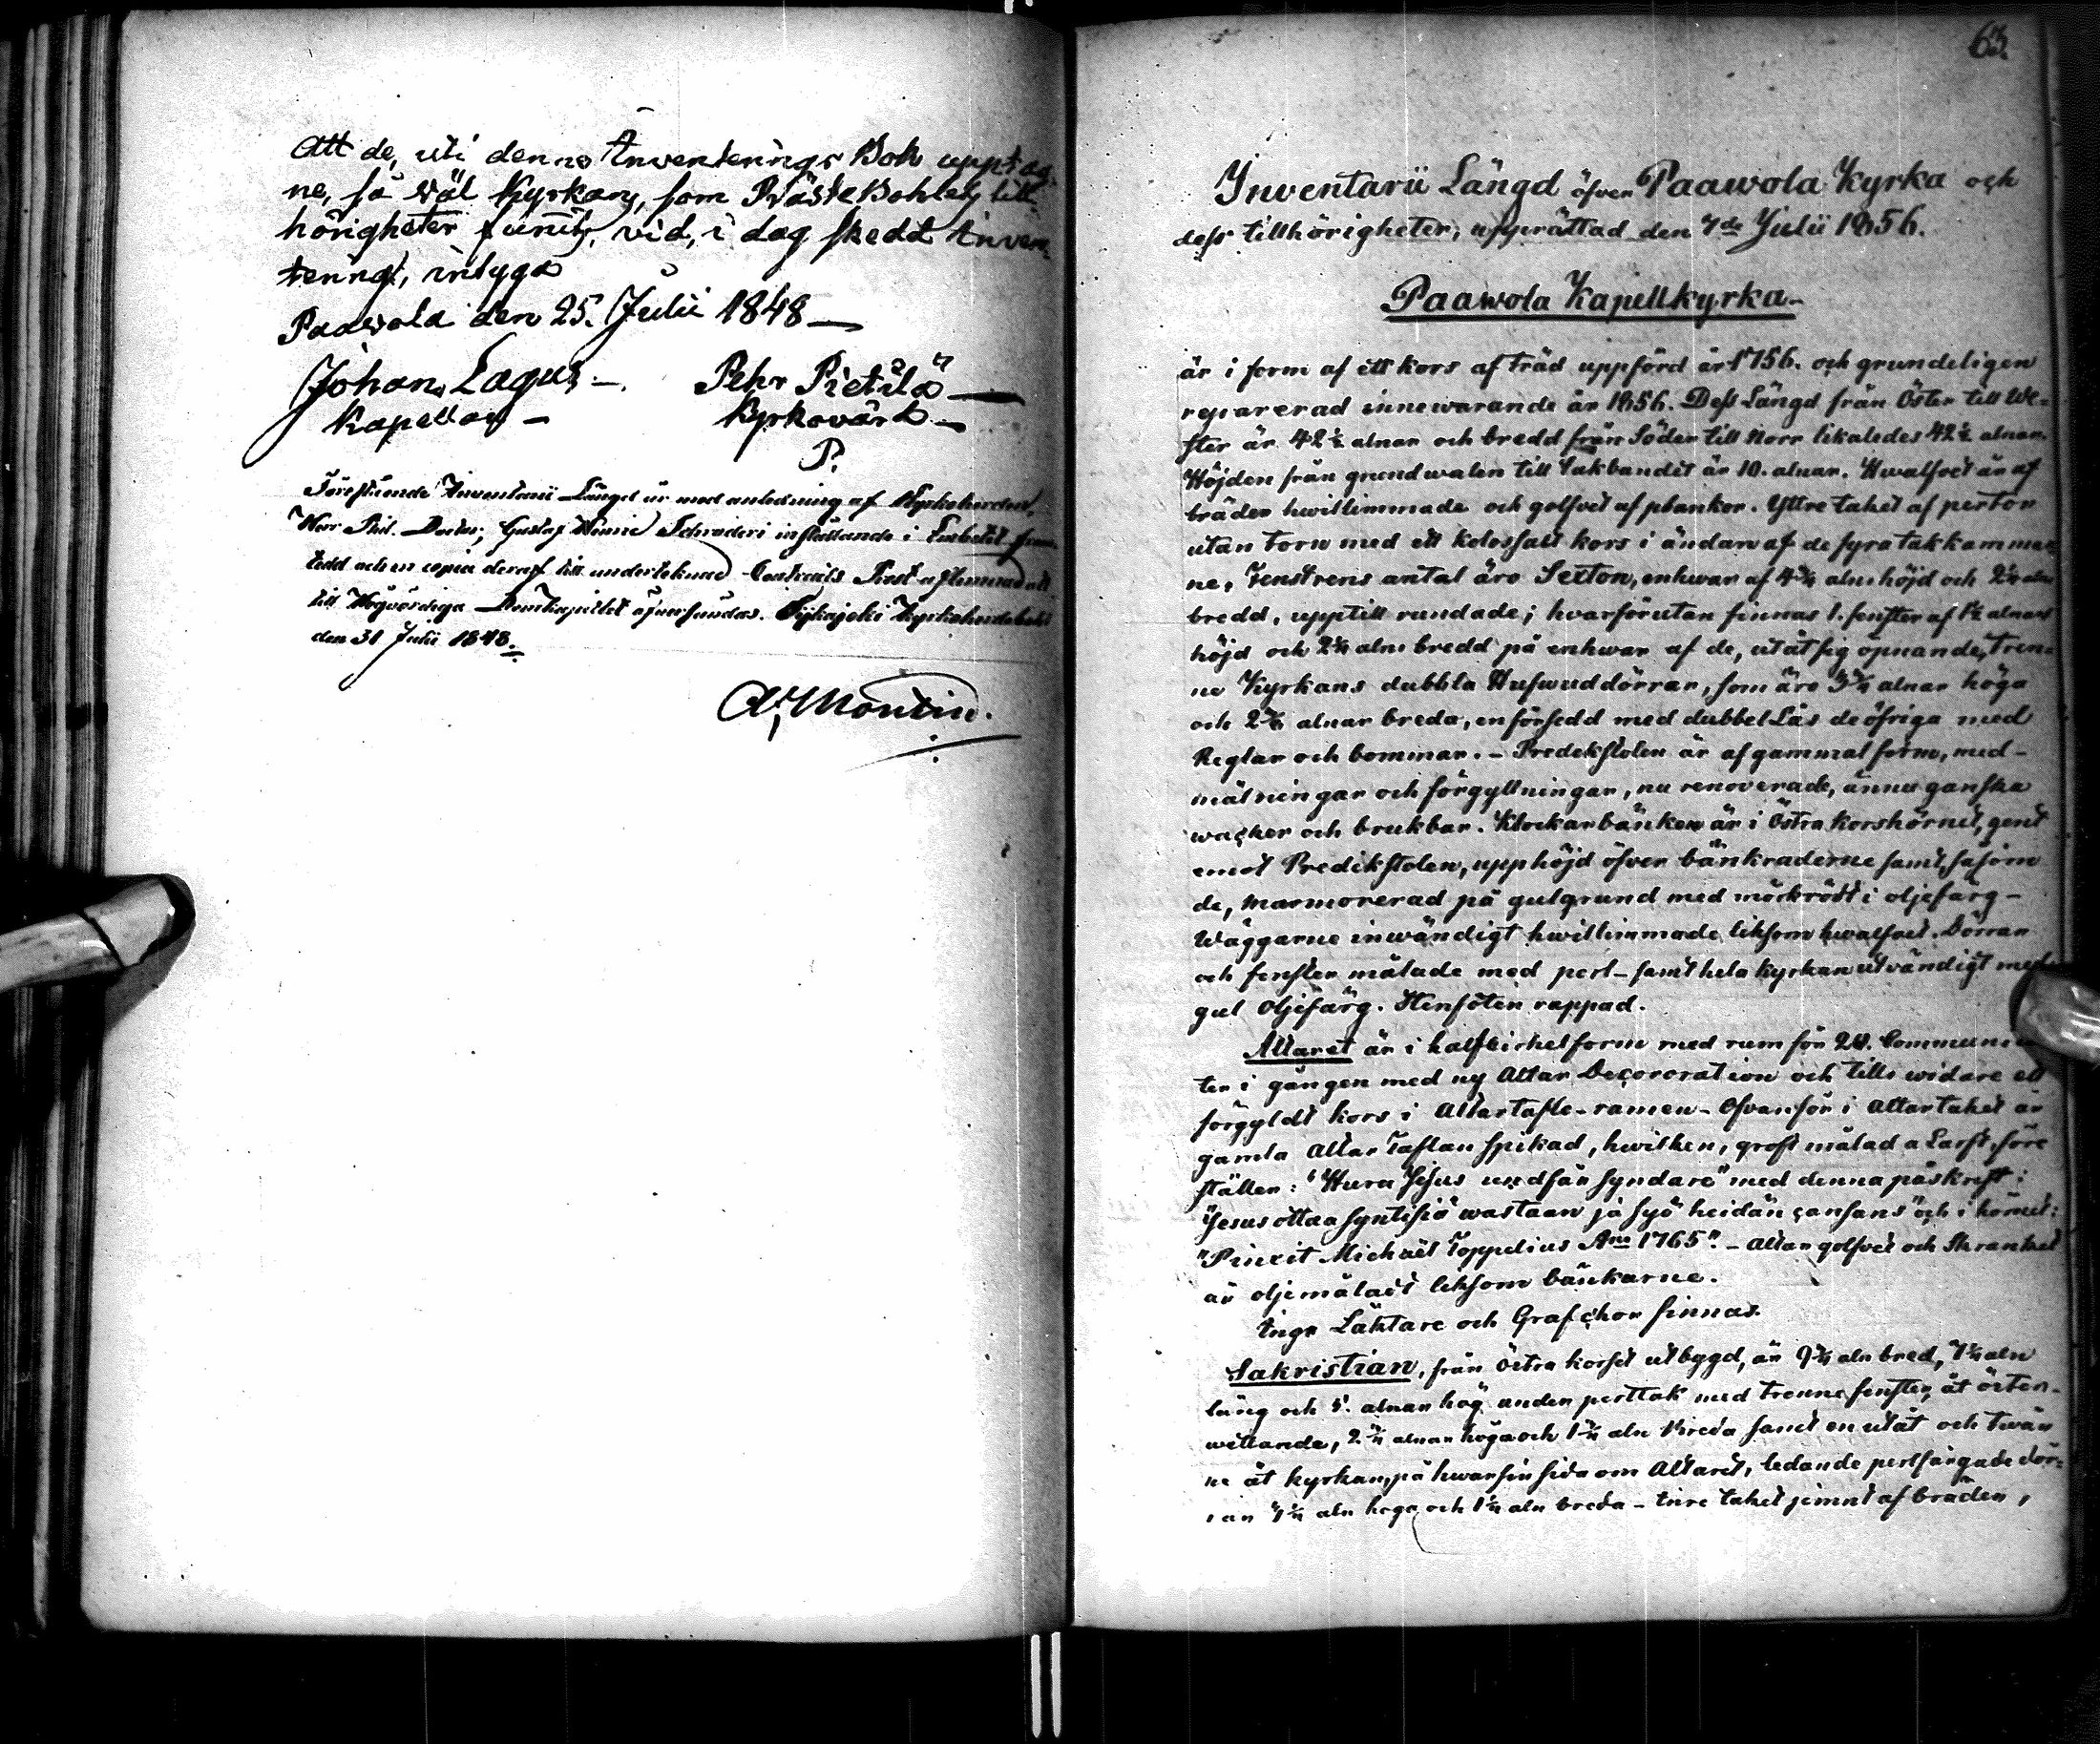 Att de, uti denna Inventerings Bok upptag-
ne, så väl Kyrkans, som PrästeBohlets till-
hörigheter funnits, vid, i dag skedd Inven-
tering, intyga
Paavola den 25. Julii 1848
Johan Lagus Pehr Pietilä
Kapellan Kyrkovärd
P.
Förestående Inventarii Längd är med anledning af Kyrkoherden,
Herr Phil. Doctor, Gustaf Schraderi inställande i Embetet
tedd och en copia deraf till undertecknad Contracts Prost aflemnad att
till Högvördiga Domkapitlet öfversändas. Sijkajoki Kyrkoherdebohl
den 31 Julii 1848.
63.
Inventarii Längd öfver Paawola Kyrka och
dess tillhörigheter, upprättad den 7de Julii 1856.
Paawola Kapellkyrka
är i form af ett kors af träd uppförd år 1756. och grundeligen
reparerad innewarande år 1856. Dess Längd från Öster till We-
ster är 42½ alnar och bredd från Söder till Norr likaledes 42½ alnar.
Höjden från grundwalen till Takbandet är 10. alnar. Hwalfvet är af
bräder hwitlimmade och golfvet af plankor. Yttre taket af pertor
utan torn med ett kolossalt kors i ändan af de fyra takkammar-
ne, Fenstrens antal äro Sexton, enhwar af 4¾ alns höjd och 2¼ alns
bredd, upptill rundade; hvarförutan finnas 1. fenster af 1½ alnars
höjd och 2¼ alns bredd på enhwar af de, utåt sig öpnande, tren-
ne Kyrkans dubbla Hufwuddörrar, som äro 3¾ alnar höga
och 2¾ alnar breda, en försedd med dubbel Lås de öfriga med
Reglar och bommar. - Predikstolen är af gammal form, med
målningar och förgyllningar, nu renoverade, ännu ganska
wacker och brukbar. Klockarbänken är i Östra korshörnet, gent
emot Predikstolen, upphöjd öfver bänkraderne samt, såsom
de, marmorerad på gul grund med mörkrödt i oljefärg -
Wäggarne inwändigt hwitlimmade liksom hwalfvet. Dörrar
och fenster målade med perl- samt hela kyrkan utvändigt med
gul Oljefärg. Stenfoten rappad.
Altaret är i halfcirkelform med rum för 20. Communican-
ter i gången med ny Altar Decoration och tills widare ett
förgyldt kors i Altartafle-ramen - Ofvanför i Altartaket är
gamla Altar Taflan spikad, hwilken, groft målad a Larft, före
ställer: "Huru Jesus undfår syndare" med denna påskrift:
"Jesus ottaa syntisiä wastaan ja syö heidän cansans" och i hörnet:
"Pinxit Michaël Toppelius Ano 1765". - Altargolfvet och Skranket
är oljemåladt liksom bänkarne.
Inga Läktare och Grafchor finnas.
Sakristian, från Östra korset utbygd, är 9¾ aln bred, 7¼ aln
lång och 5. alnar hög under perttak med trenne fenster, åt öster
wettande, 2¾ alnar höga och 1¾ aln breda samt en utåt och twän
ne åt kyrkan, på hwar sin sida om Altaret, ledande perlfärgade dör-
rar 3¼ aln höga och 1¼ aln breda - Inre taket jemnt af bräden,